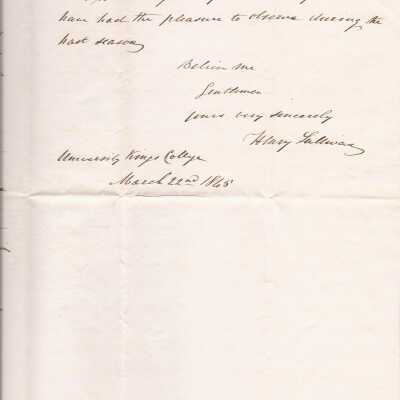 have had the pleasure to observe during the
past season
Believe me
Gentlemen
yours very sincerely
Henry Sullivan
University Kings College
March 22nd 1865